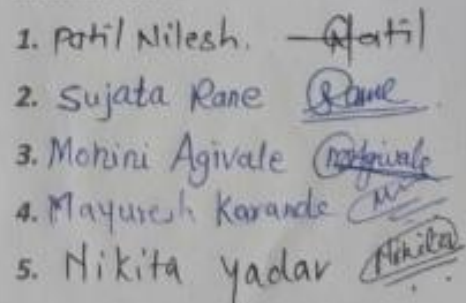 1. Patil Nilesh. Patil
2. Sujata Rane Rane
3. Mohini Agivale Agivale
4. Mayuresh Karande
5. Nikita Yadav Nikita